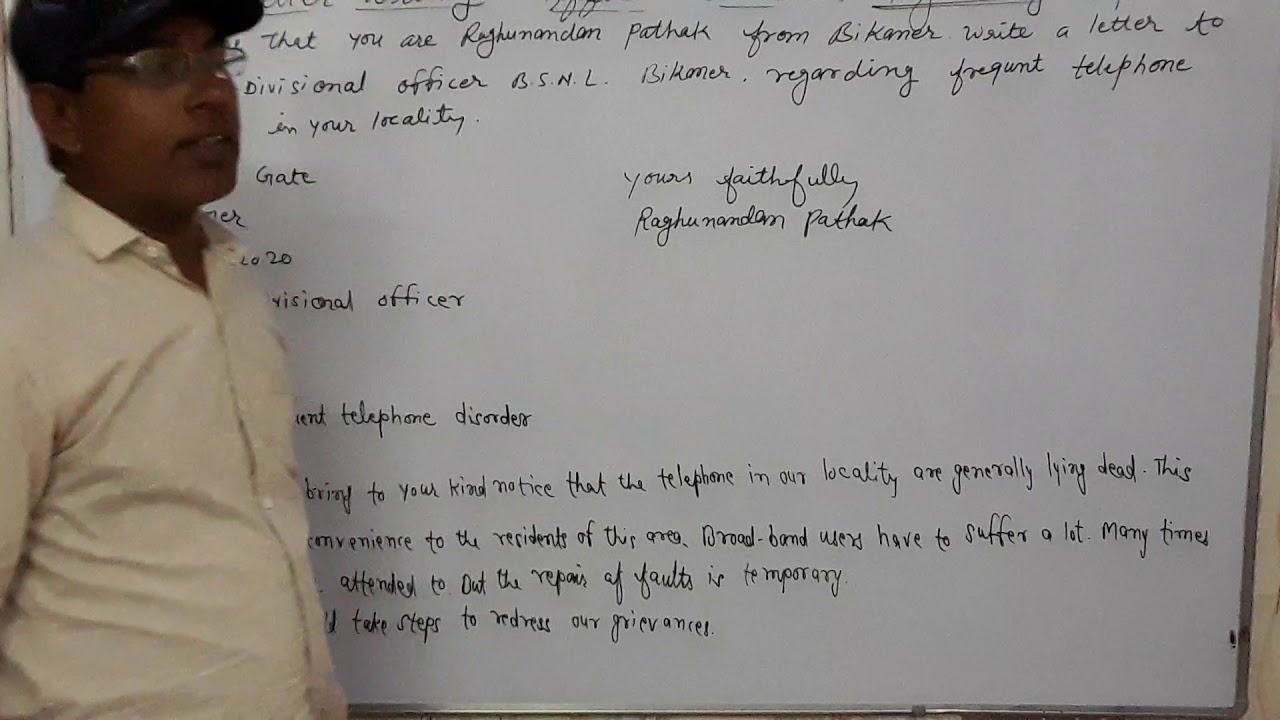 that you are Raghunandan Pathak from Bikaner. write a letter to
Divisional officer B.S.N.L. Bikaner. regarding frequnt telephone
in your locality.
Gate
yours faithfully
Raghunandan Pathak
ner
2020
visional officer
uent telephone disorder
bring to your kind notice that the telephone in our locality are generally lying dead. This
convenience to the residents of this area. Broad-band users have to suffer a lot. Many times
attended to. But the repair of faults is temporary.
take steps to redress our grievances.